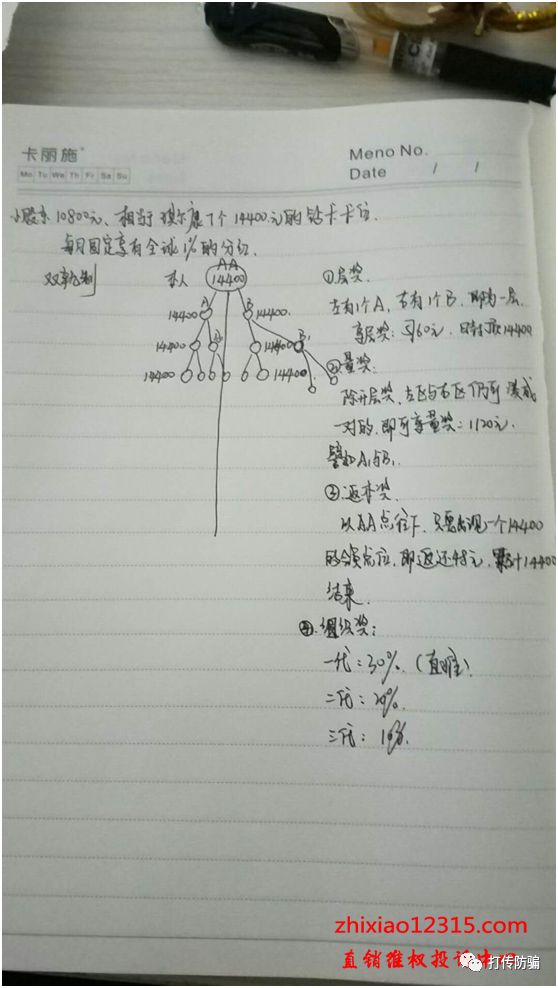 卡丽施
Mo Tu We Th Fr Sa Su
Meno No.
Date / /
小股东10800元、相当于琪尔康1个14400元的钻卡卡位.
每月固定享有全球1%的分红.
双轨制
本人
AA
14400
A
14400
B
14400.
14400
14400
B1
14400
14400
①层奖.
左有1个A,右有1个B,即为一层.
享层奖:
日封顶14400
②量奖.
除开层奖,左区与右区仍可凑成
一对的,即可享量奖:1120元.
譬如A1与B1.
③返本奖.
以AA点往下,只要出现一个14400
的会员点位,即返还48元,累计14400
结束.
④.组织奖:
一代:30%.(直推)
二代:20%.
三代:10%.
zhixiao12315.com
直销维权投诉中心
打传防骗